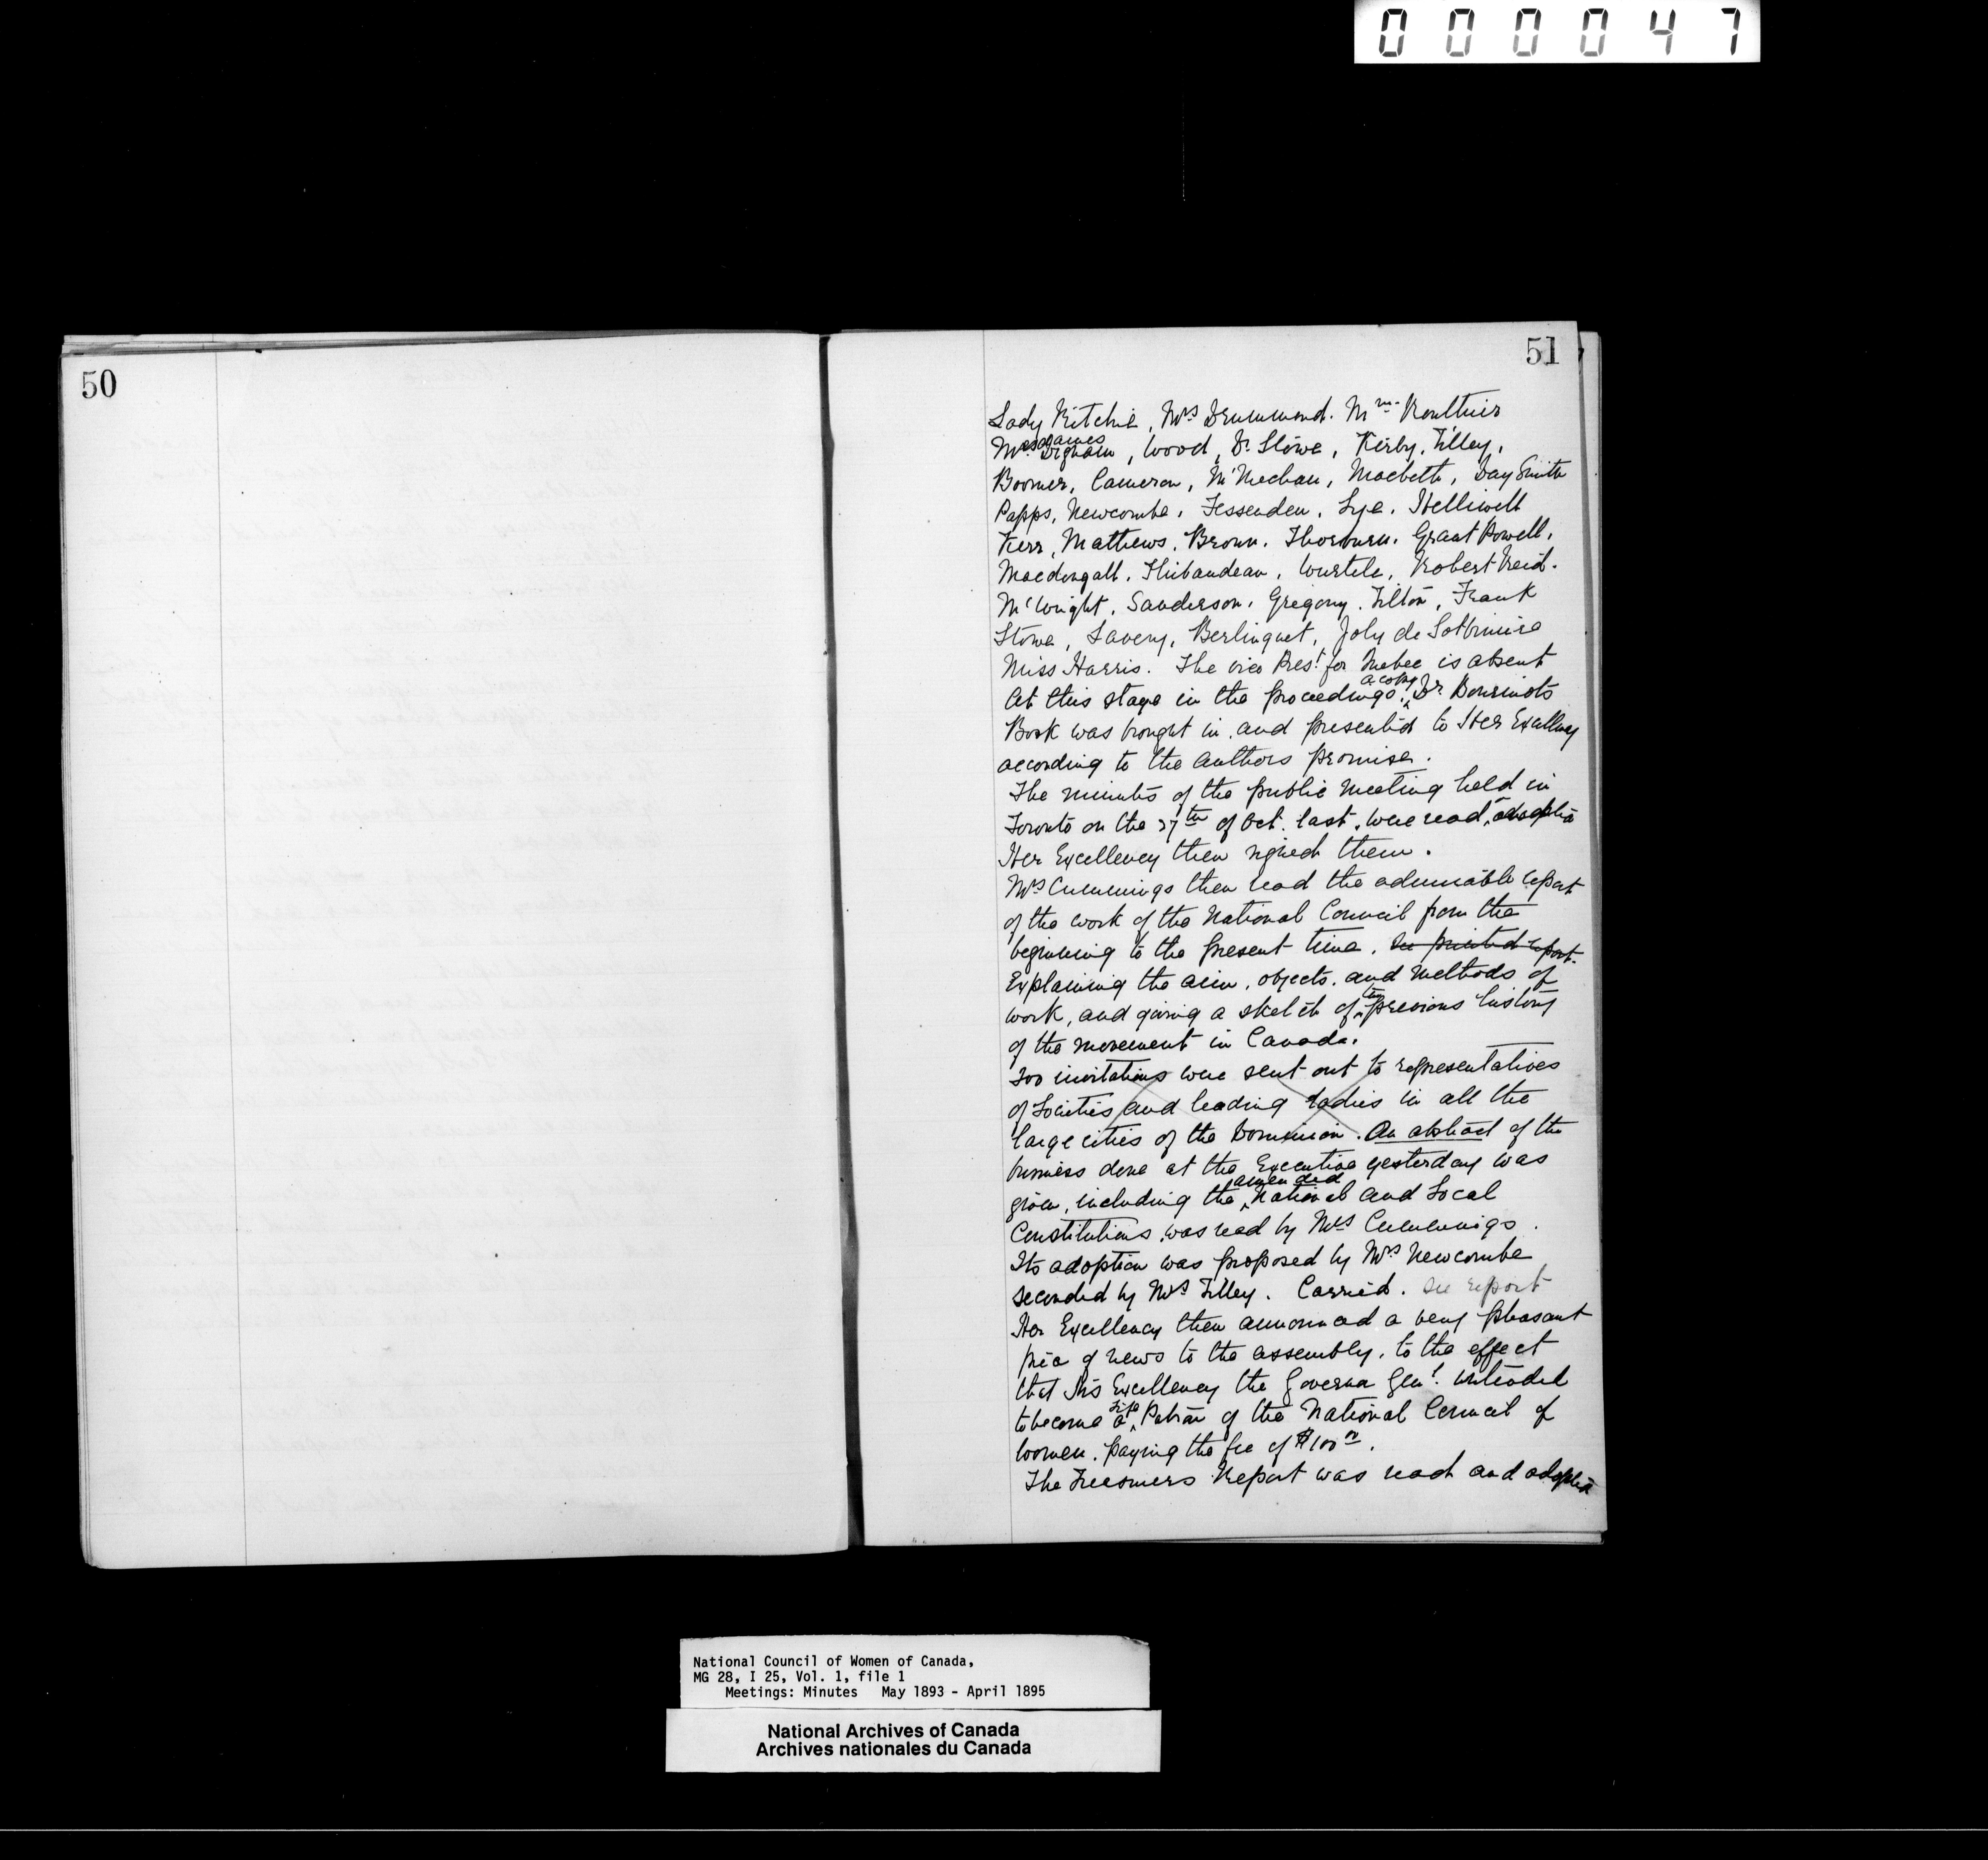 000047
50
51
Lady Ritchie, Mrs Drummond. Mme Routhier
Mesdames Bigham, Wood, Dr. Stowe, Kerby, Tilley,
Boomer, Cameron, Macbeth, Day Smith
Papps, Newcombe, Fessenden, Lye, Helliwell
Kerr, Mathews, Brown, Thorburn, Grant Powell,
Macdougall, Thibaudeau, Wurtele, Robert Reid.
McWright, Sanderson, Gregory, Tilton, Frank
Stowe, Savery, Berlinguet, Joly de Lotbiniere
Miss Harris. The vice Prest. for Quebec is absent
At this stage in the proceedings, a copy Dr Bourinots
Book was brought in, and presented to Her Excellency
according to the authors promise.
The minutes of the public meeting held in
Toronto on the 27th of Oct. last, were read, adopted
Her Excellency then signed them.
Mrs Cummings then read the admirable report
of the work of the National Council from the
beginning to the present time. See printed report.
Explaining the aim, objects, and methods of
work, and giving a sketch of the previous history
of the movement in Canada.
invitations were sent out to representatives
of Societies and leading ladies in all the
large cities of the Dominion. An abstract of the
business done at the Executive yesterday was
given, including the amended National and Local
Constitutions, was read by Mrs Cummings.
Its adoption was proposed by Mrs Newcombe
seconded by Mrs Tilley. Carried. See report
Her Excellency then announced a very pleasant
piece of news to the assembly, to the effect
that His Excellency the Governor Genl. intended
to become a Life Patron of the National Council of
Women, paying the fee of $100
The Treasurers Report was read and adopted
National Council of Women of Canada,
MG 28, I 25, Vol. 1, file 1
Meetings: Minutes May 1893 - April 1895
National Archives of Canada
Archives nationales du Canada